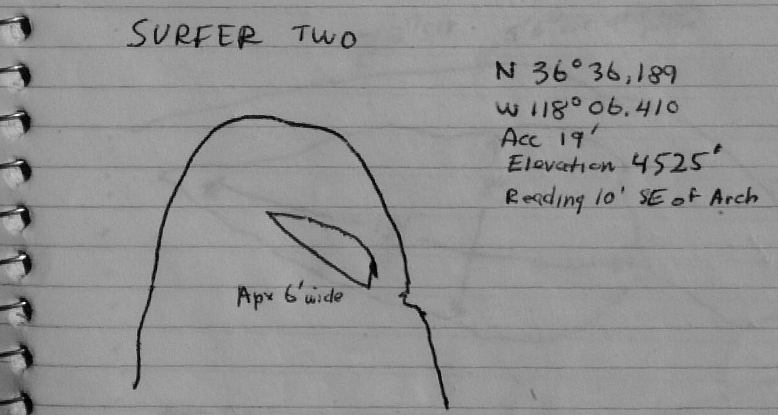 SURFER TWO
N 36° 36,189
W 118° 06.410
Acc 19'
Elevation 4525'
Reading 10' SE of Arch
Apx 6' wide